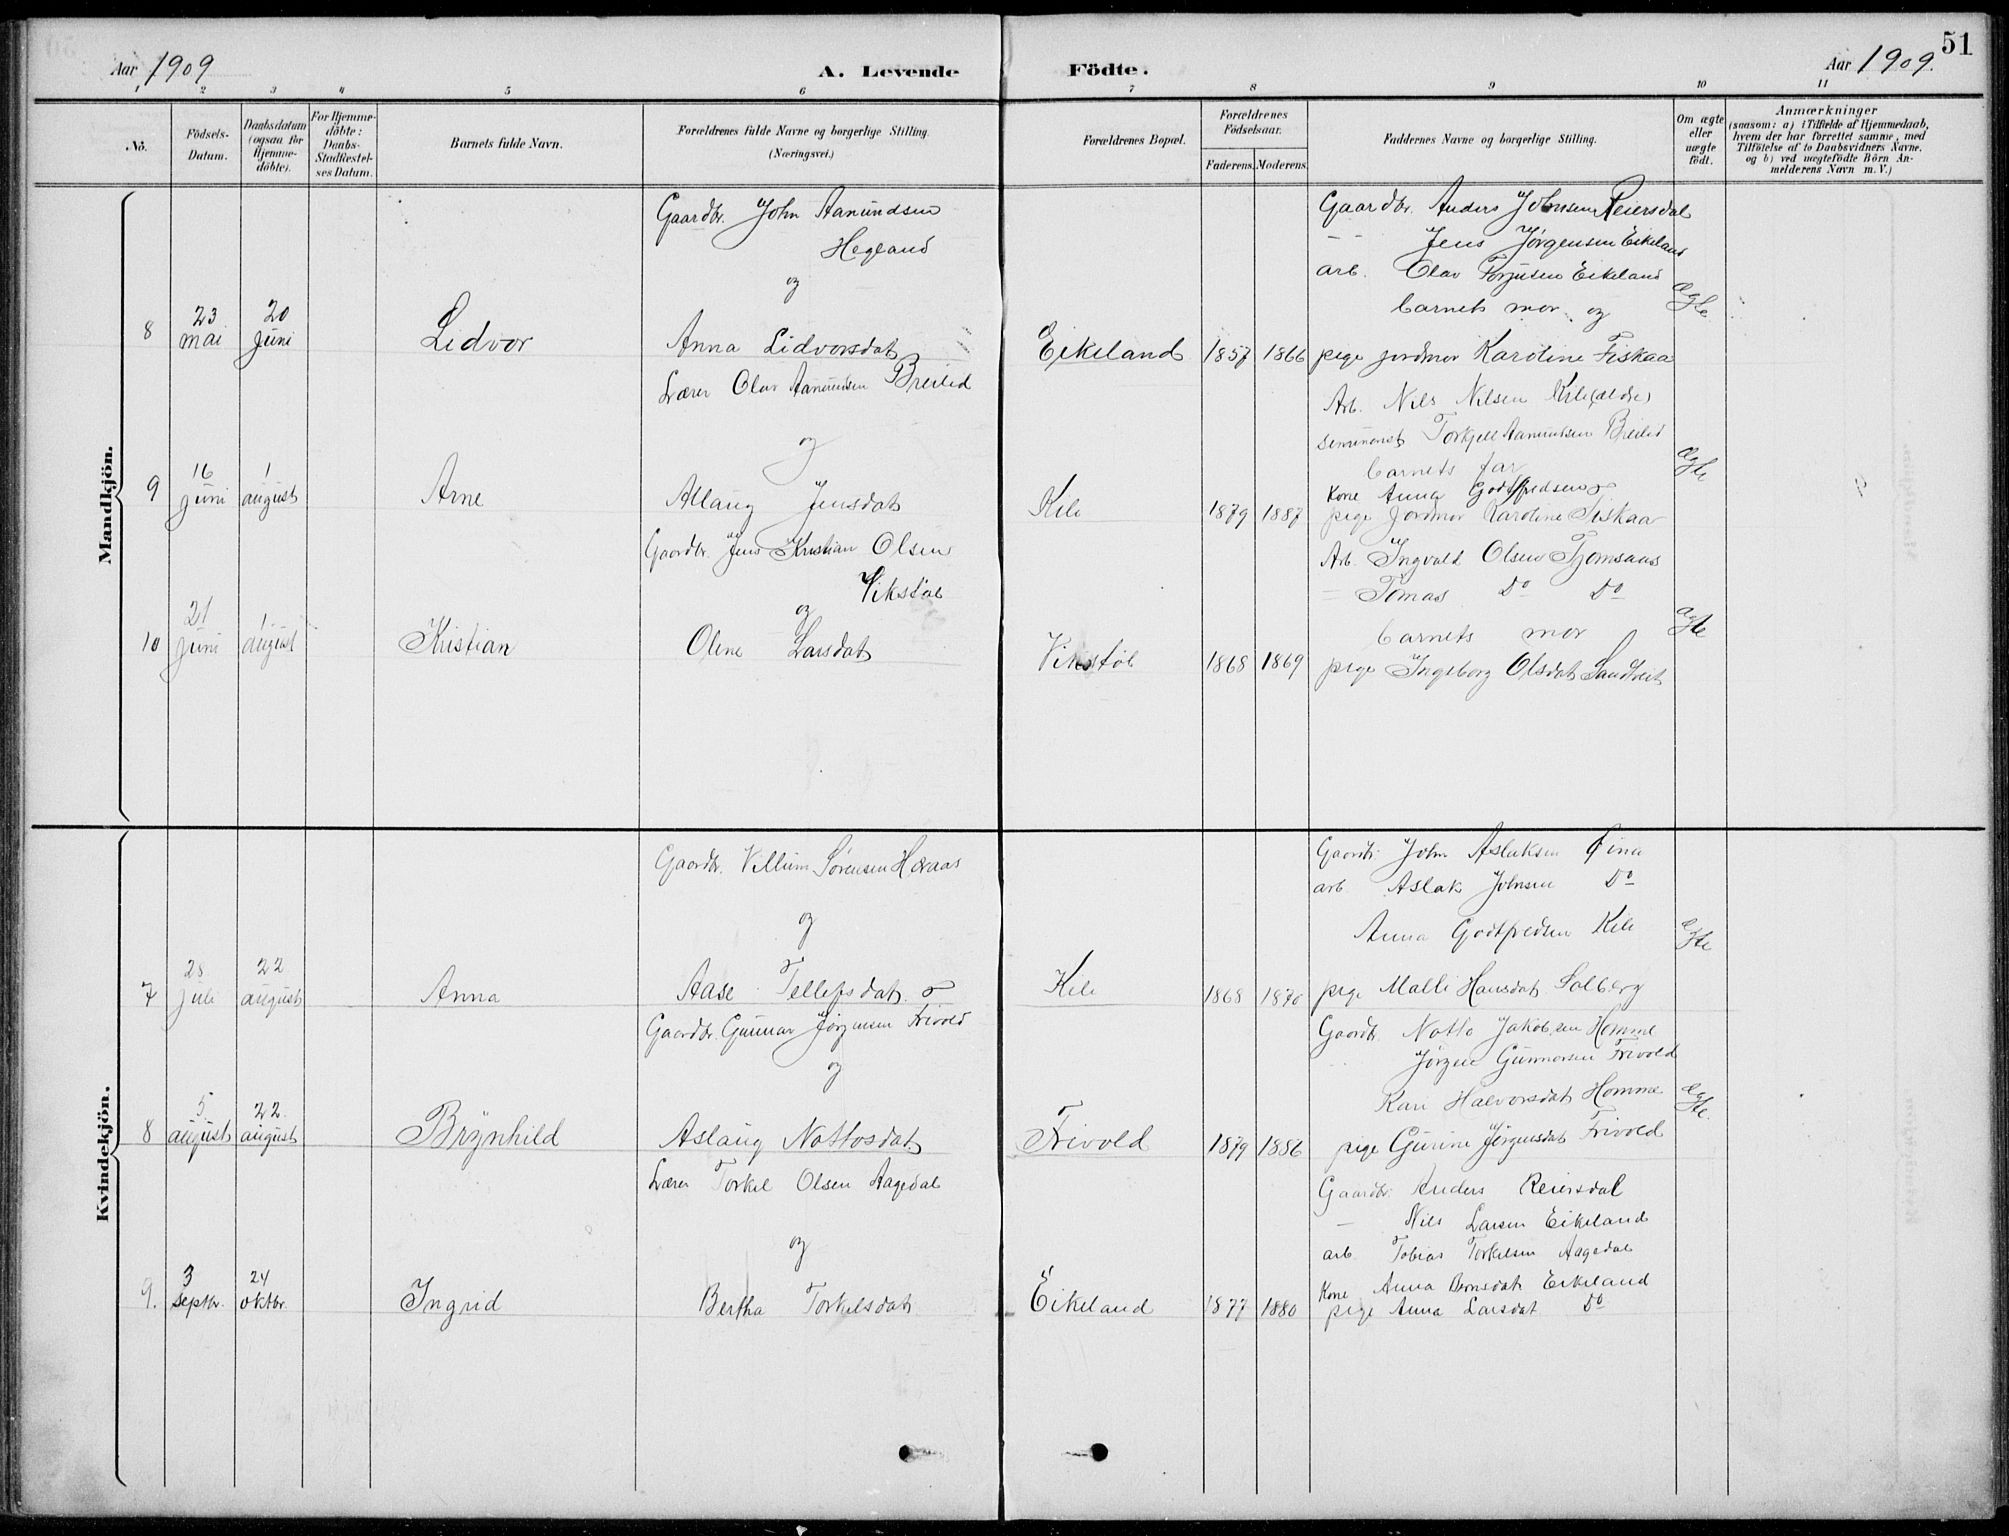 51
Aar 1909
A. Levende
Födte.
Aar 1909.
1 2 3 4 5 6 7 8 9 10 11
No.
Födsels-
Datum.
Daabsdatum
(ogsaa for
Hjemme-
döbte).
For Hjemme-
döbte:
Daabs-
Stadfæstel-
ses Datum.
Barnets fulde Navn.
Forældrenes fulde Navne og borgerlige Stilling.
(Næringsvei.)
Forældrenes Bopæl.
Forældrenes
Födselsaar.
Faderens.
Moderens.
Faddernes Navne og borgerlige Stilling.
Om ægte
eller
uægte
födt.
Anmærkninger
(saasom: a) i Tilfælde af Hjemmedaab,
hvem der har forrettet samme, med
Tilföielse af to Daabsvidners Navne.
og b) ved uægtefödte Börn An-
melderens Navn m. V.)
Mandkjön.
8
23
mai
20
juni
Lidvor
Gaardbr. John Aanundsen
Hegland
og
Anna Lidvorsdat
Eikeland
1857
1866
Gaardbr. Anders Johnsen Reiersdal
– – Jens Jørgensen Eikeland
arb. Olav Torjusen Eikeland
barnets mor og
pige jordmor Karoline Fiskaa
ægte
9
16
juni
1
august
Arne
Lærer Olav Aanundsen Breilid
og
Allaug Jensdat
Kile
1879
1887
Arb. Nils Nilsen Kile (ældre)
seminarist Torkjell Aanundsen Breilid
barnets far
Kone Anna Godtfredsen og
pige jordmor Karoline Fiskaa
ægte
10
21
juni
1
august
Kristian
Gaardbr. Jens Kristian Olsen
Vikstøl
og
Olene Larsdat
Vikstøl
1868
1869
Arb. Ingvald Olsen Tjomsaas
– Tomas Do Do
barnets mor
pige Ingeborg Olsdat Sandtveit
ægte
Kvindekjön.
7
28
juli
22
august
Anna
Gaardbr. Villum Sørensen Heraas
og
Aase Tellefsdat
Kile
1868
1870
Gaardbr. John Aslaksen Øina
arb. Aslak Johnsen Do
Anna Godtfredsen Kile
pige Malli Hansdat Solberg
ægte
8
5
august
22
august
Brynhild
Gaardbr. Gunnar Jørgensen Frivold
og
Aslaug Nottosdat
Frivold
1879
1886
Gaardbr. Notto Jakobsen Homme
Jørgen Gunnarsen Frivold
Kari Halvorsdat Homme
pige Gurine Jørgensdat Frivold
ægte.
9.
3
septbr.
24
oktbr.
Ingrid
Lærer Torkel Olsen Aagedal
og
Bertha Torkelsdat
Eikeland
1877
1880
Gaardbr. Anders Reiersdal
– Nils Larsen Eikeland
arb. Tobias Torkelsen Aagedal
Kone Anna Bernsdat Eikeland
pige Anna Larsdat Do